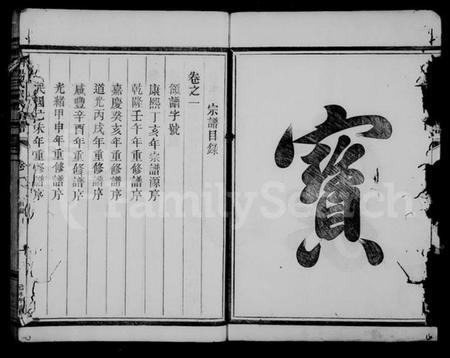 寶
宗譜目錄
卷之一
領譜字號
康熙丁亥年宗譜源序
乾隆壬午年重修譜序
嘉慶癸亥年重修譜序
道光丙戌年重修譜序
咸豐辛酉年重修譜序
光緒甲申年重修譜序
民國己未年重修譜序
FamilySearch